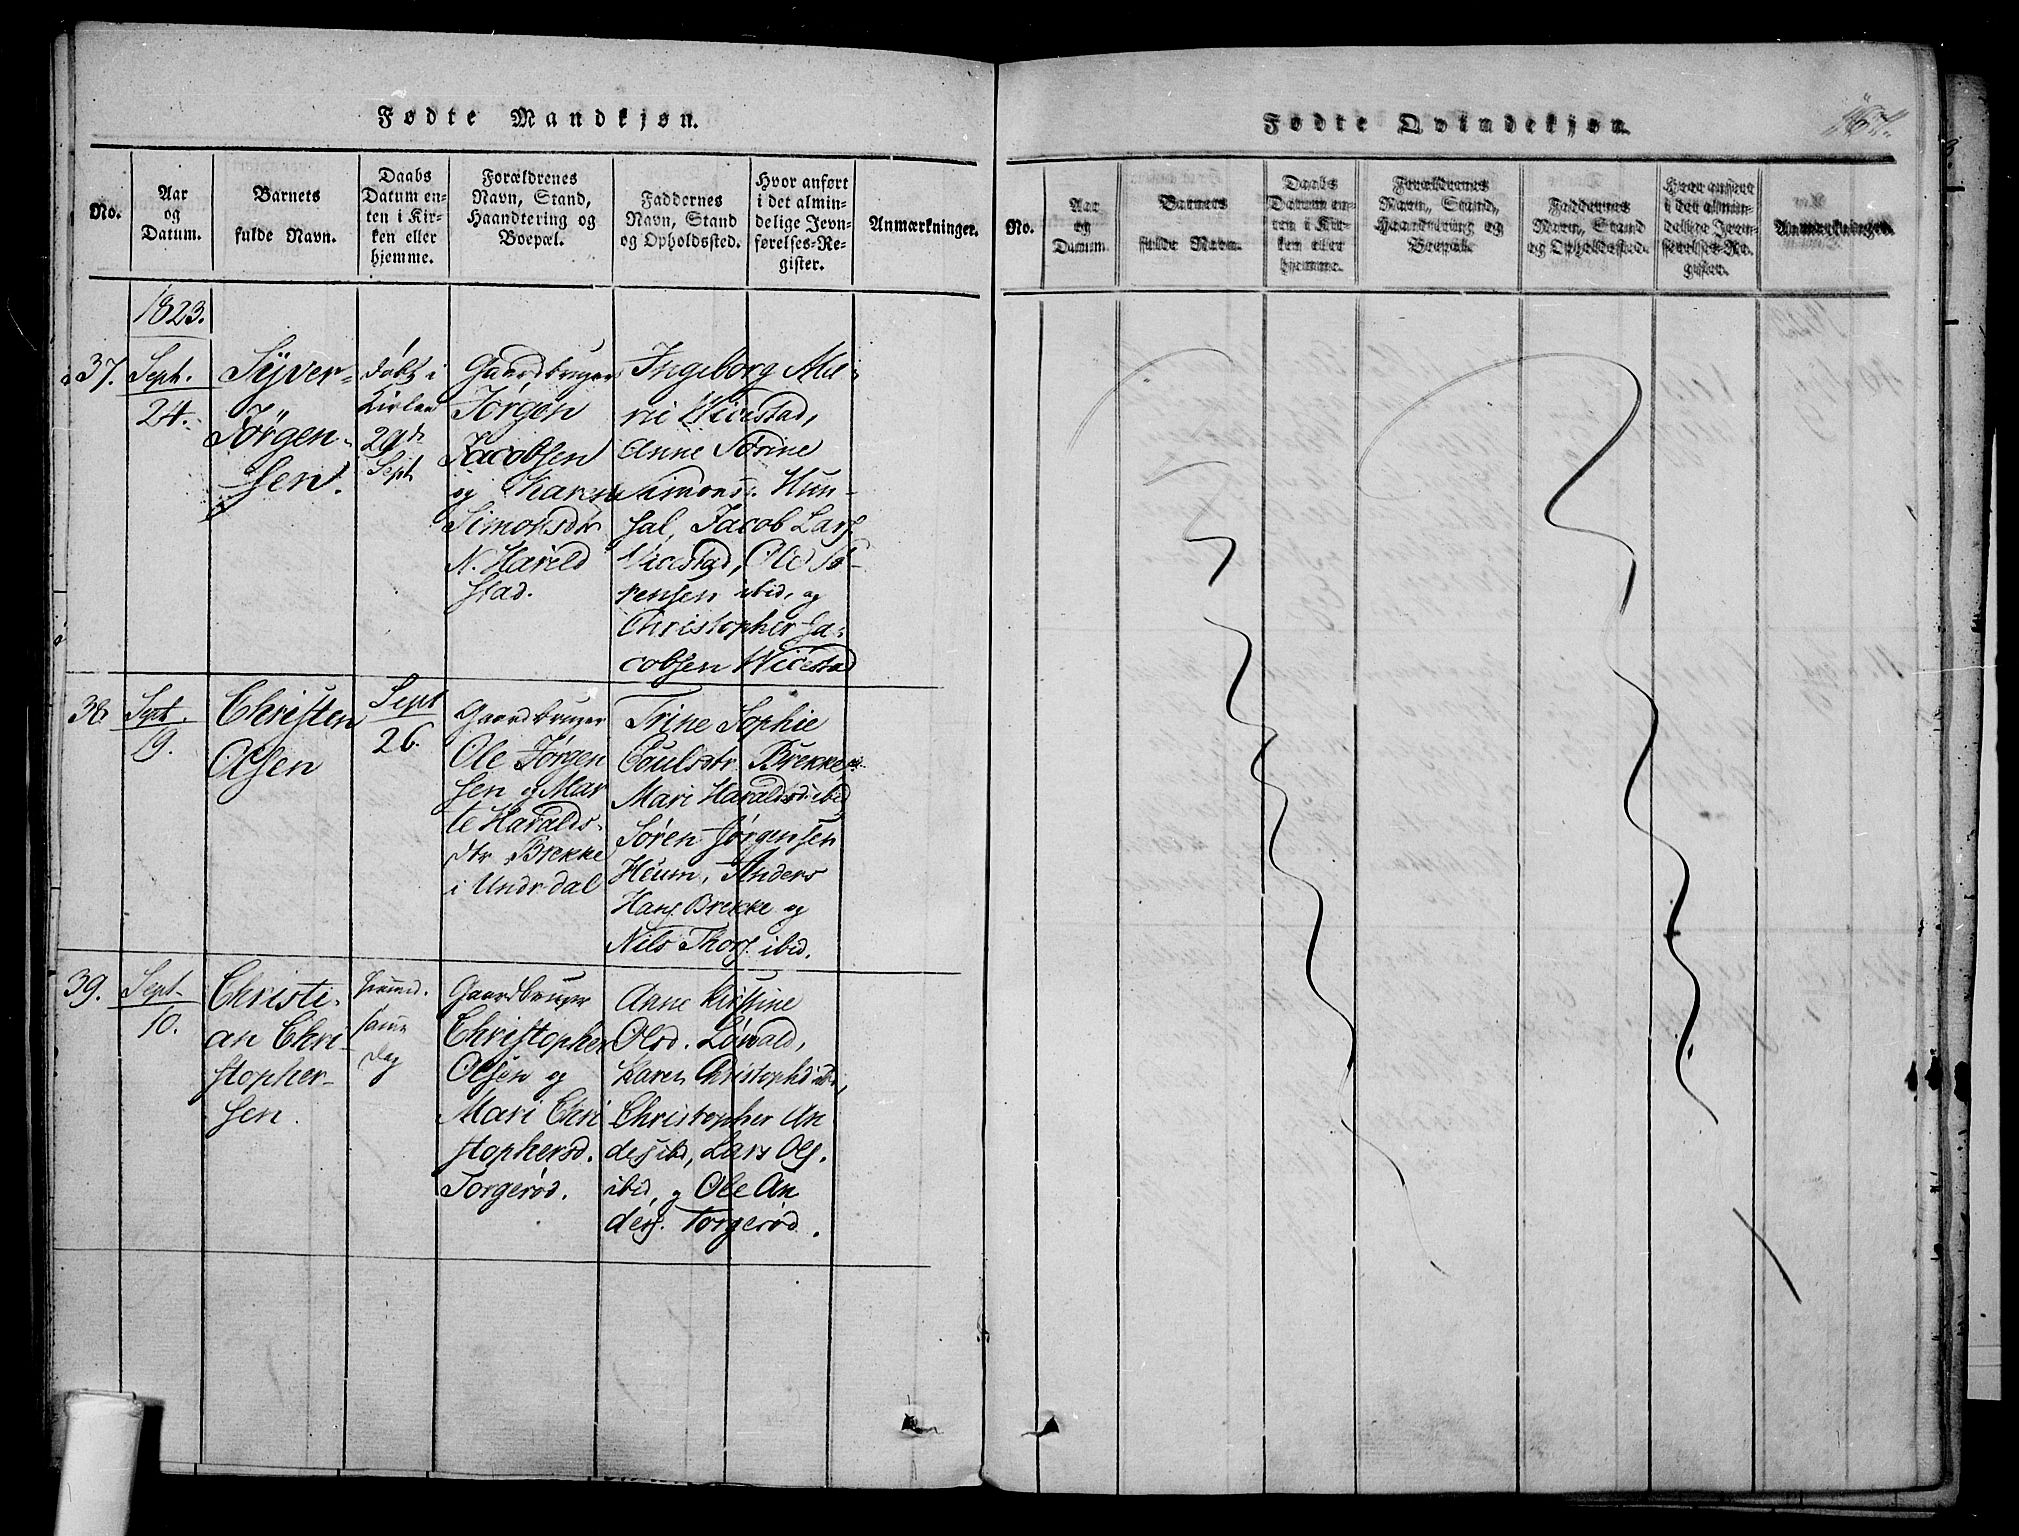 Fødte Mandkjøn.
No.
Aar
og
Datum.
Barnets
fulde Navn.
Daabs
Datum en-
ten i Kir-
ken eller
hjemme.
Forældrenes
Navn, Stand,
Haandtering og
Boepæl.
Faddernes
Navn, Stand
og Opholdssted.
Hvor anført
i det almin-
delige Jevn-
førelses-Re-
gister.
Anmærkninger.
1823.
37.
Sept.
24.
Syver
Jörgen-
sen.
døbt i
Kirken
29de
Sept
Gaardbruger
Jørgen
Jacobsen
og Karen
Simonsdr
N. Harild
stad.
Ingeborg Ma-
rie Wirestad,
Anne Sørine
Simonsd. Hun-
sal, Jacob Lars.
Virestad, Ole Sø-
rensen ibid, og
Christopher Ja-
cobsen Wirestad
38.
Sept.
9.
Christen
Olsen
Sept
26.
Gaardbruger
Ole Jørgen
sen og Mar
te Haralds-
dtr Brekke
i Undrdal
Trine Sophie
Paulsdtr Brekke
Mari Haraldsd. ibid
Søren Jørgensen
Heum, Anders
Hans. Brekke og
Nils Thors. ibid.
39.
Sept.
10.
Christi-
an Chri-
stopher-
sen.
hiemme
samme
Dag
Gaardbruger
Christopher
Olsen og
Mari Chri
stophersd.
Torgerød.
Anne Kirstine
Olsd. Løwald,
Karen Christophd ibd,
Christopher An
ders ibd, Lars Ols.
ibid, og Ole An
ders. Torgerød.
Fødte Qvindekjøn.
167.
No.
Aar
og
Datum.
Barnets
fulde Navn.
Daabs
Datum en-
ten i Kir-
ken eller
hjemme.
Forældrenes
Navn, Stand,
Haandtering og
Boepæl.
Faddernes
Navn, Stand
og Opholdssted.
Hvor anført
i det almin-
delige Jevn-
førelses-Re-
gister.
Anmærkninger.